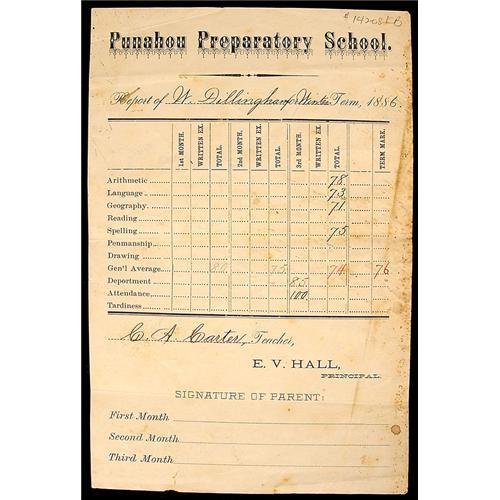 # 14208KB
Punahou Preparatory School.
Report of W. Dillingham for Winter Term, 1886
1st MONTH. WRITTEN EX. TOTAL. 2nd MONTH. WRITTEN EX. TOTAL. 3rd MONTH. WRITTEN EX. TOTAL. TERM MARK.
Arithmetic 78
Language 73
Geography 71
Reading
Spelling 75
Penmanship
Drawing
Gen'l Average 75 74 76
Deportment 85
Attendance 100
Tardiness
C. A. Carter, Teacher,
E. V. HALL,
PRINCIPAL.
SIGNATURE OF PARENT:
First Month
Second Month
Third Month